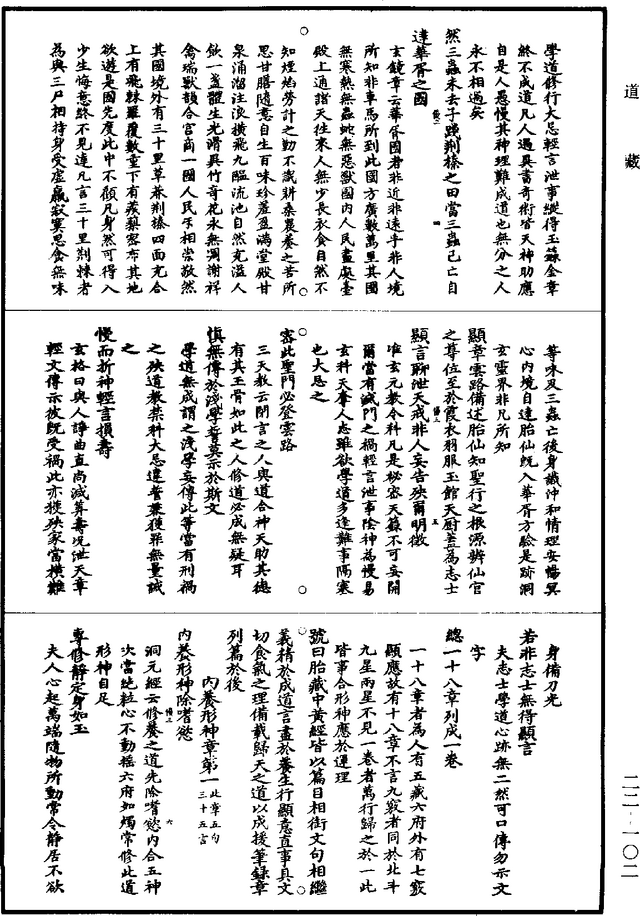 學道修行大忌輕言泄事縱得玉籙金章
終不成道凡人遇異書奇術皆天神助應
自是人愚慢其神理難成道也無分之人
永不相遇矣
然三蟲未去子踐荊榛之田當三蟲已亡自
達華胥之國
玄鏡章云華胥國者非近非遠乎非人境
所知非車馬所到此國方廣數萬里其國
無寒熱無蟲蛇無惡獸國內人民盡處臺
殿上通諸天往來人無少長衣食自然不
知煙焰勞計之勤不識耕桑農養之苦所
思甘膳隨意自生百味珍羞盈滿堂殿甘
泉涌溜注浪橫飛九醞流池自然充溢人
飲一盞體生光滑異竹奇花永無凋謝祥
禽瑞獸韻合宮商一國人民互相崇敬然
其國境外有三十里草莽荊榛四面充合
上有飛棘羅覆數重下有蒺藜密布其地
欲遊是國先度此中不顧凡身然可得入
少生悔意終不見達凡言三十里荊棘者
為與三尸相持身受虛羸寂寞思食無味
等味及三蟲亡後身識沖和情理安暢冥
心內境自達胎仙旣入華胥方驗是跡洞
玄靈界非凡所知
顯章雲路備述胎仙知聖行之根源辨仙官
之尊位至於霞衣羽服玉館天廚蓋為志士
顯言聊泄天戒非人妄告殃爾明徵
准玄元教令科凡是秘密天籙不可妄開
爾當有滅門之禍輕言泄事陰神為慢易
玄科天奪人志雖欲學道多逢難事隔塞
也大忌之
密此聖門必登雲路
三天教云閉言之人與道合神天助其德
有其玉骨如此之人修道必成無疑耳
慎無傳於淺學誓莫示於斯文
學道無成謂之淺學妄傳此等當有刑禍
之殃道教禁科大忌違誓兼獲罪無量誡
之
慢而折神輕言損壽
玄格曰與人諍曲直尚減算壽況泄天章
輕文傳示彼旣受禍此亦獲殃家當橫離
身備刀光
若非志士無得顯言
夫志士學道心跡無二然可口傳勿示文
字
總一十八章列成一卷
一十八章者為人有五藏六府外有七竅
顯應故有十八章不言九竅者同於北斗
九星兩星不見一卷者萬行歸之於一此
皆事合形神應於運理
號曰胎藏中黄經皆以篇目相銜文句相繼
義精於成道言盡於養生行顯意直事具文
切食氣之理備載歸天之道以成援筆錄章
列篇於後
內養形神章第一 此章五句三十五言
內養形神除嗜慾
洞元經云修養之道先除嗜慾內合五神
次當絕粒心不動搖六府如燭常修此道
形神自足
專修靜定身如玉
夫人心起萬端隨物所動常令靜居不欲
道藏
二二—一〇二